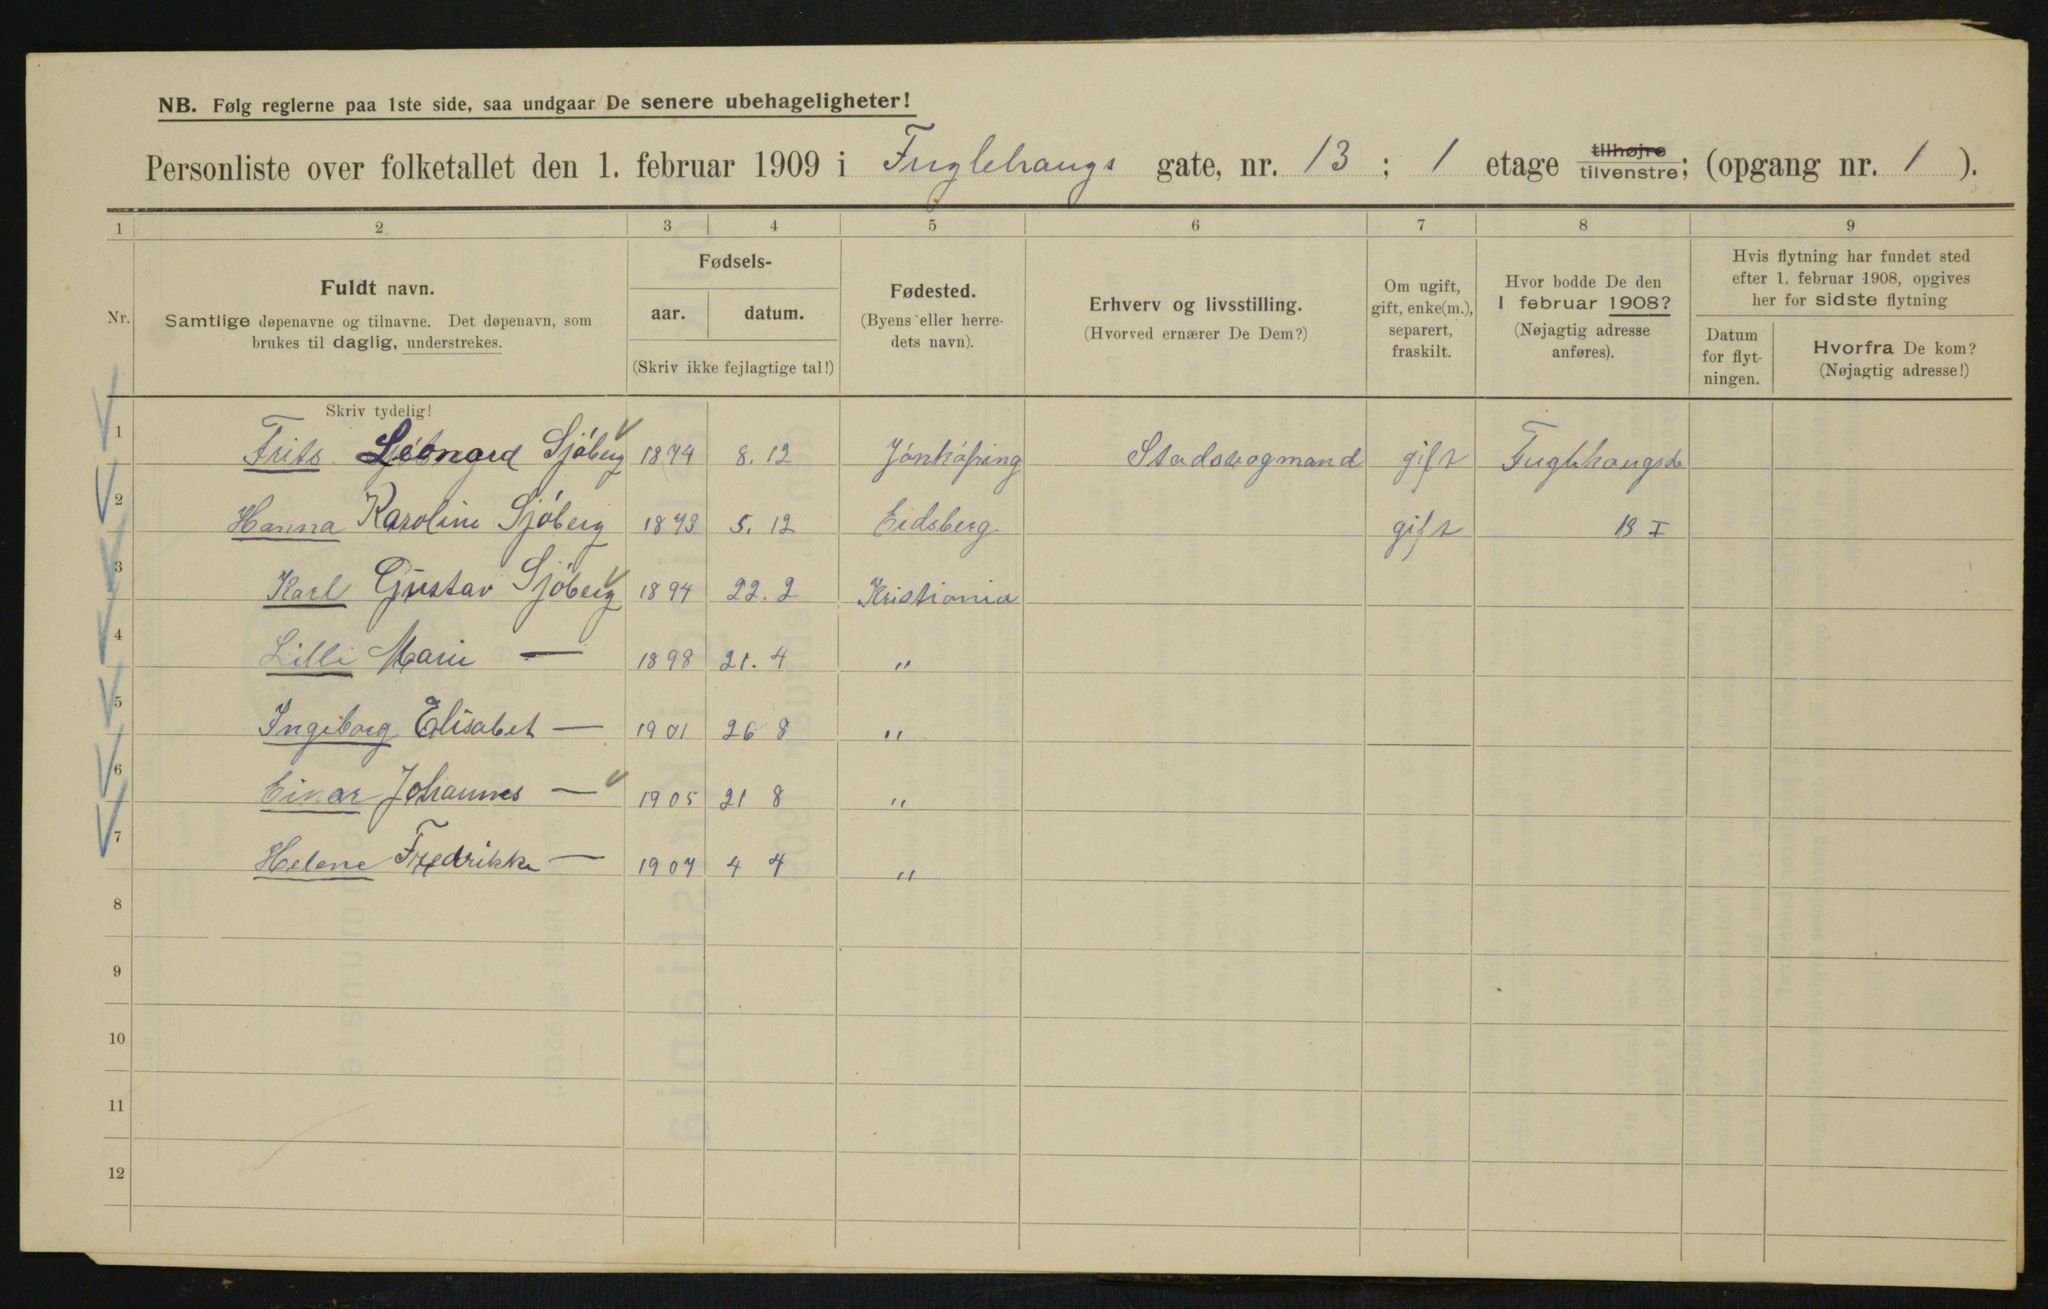 NB. Følg reglerne paa 1ste side, saa undgaar De senere ubehageligheter!
Personliste over folketallet den 1. februar 1909 i Fuglehaugs gate, nr. 13 ; 1 etage tilhøjre tilvenstre; (opgang nr. 1 ).
1 2 3 4 5 6 7 8 9
Nr.
Fuldt navn.
Samtlige døpenavne og tilnavne. Det døpenavn, som
brukes til daglig, understrekes.
Fødsels-
aar. datum.
(Skriv ikke fejlagtige tal!)
Fødested.
(Byens eller herre-
dets navn).
Erhverv og livsstilling.
(Hvorved ernærer De Dem?)
Om ugift,
gift, enke(m.),
separert,
fraskilt.
Hvor bodde De den
1 februar 1908?
(Nøjagtig adresse
anføres).
Hvis flytning har fundet sted
efter 1. februar 1908, opgives
her for sidste flytning
Datum
for flyt-
ningen.
Hvorfra De kom?
(Nøjagtig adresse!)
Skriv tydelig!
1 Frits Leonard Sjöberg 1874 8. 12 Jönköping Stadsvogmand gift Fuglehaugsgt
2 Hanna Karoline Sjöberg 1873 5. 12 Eidsberg gift 13 I
3 Karl Gustav Sjöberg 1894 22. 2 Kristiania
4 Lilli Marie — 1898 21. 4 "
5 Ingeborg Elisabet — 1901 26 8 "
6 Einar Johannes — 1905 21 8 "
7 Helene Fredrikke — 1907 4 4 "
8
9
10
11
12